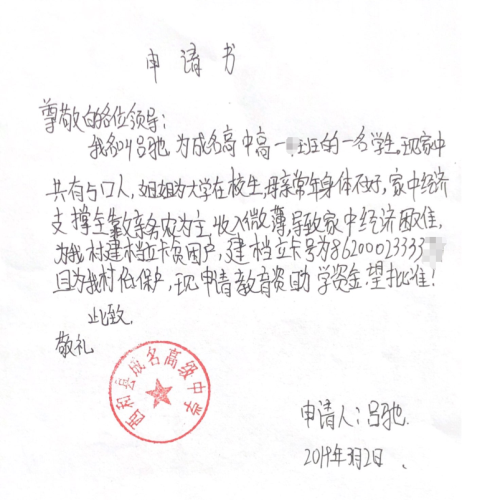 申请书
尊敬的各位领导：
我名叫吕驰，为成名高中高一班的一名学生。现家中
共有5口人，姐姐为大学在校生，母亲常年身体不好，家中经济
支撑全靠父亲务农为主，收入微薄，导致家中经济困难，
为我村建档立卡贫困户，建档立卡号为86200023333
且为我村低保户，现申请教育资助学资金，望批准！
此致
敬礼
西和县成名高级中学
申请人：吕驰
2019年3月2日